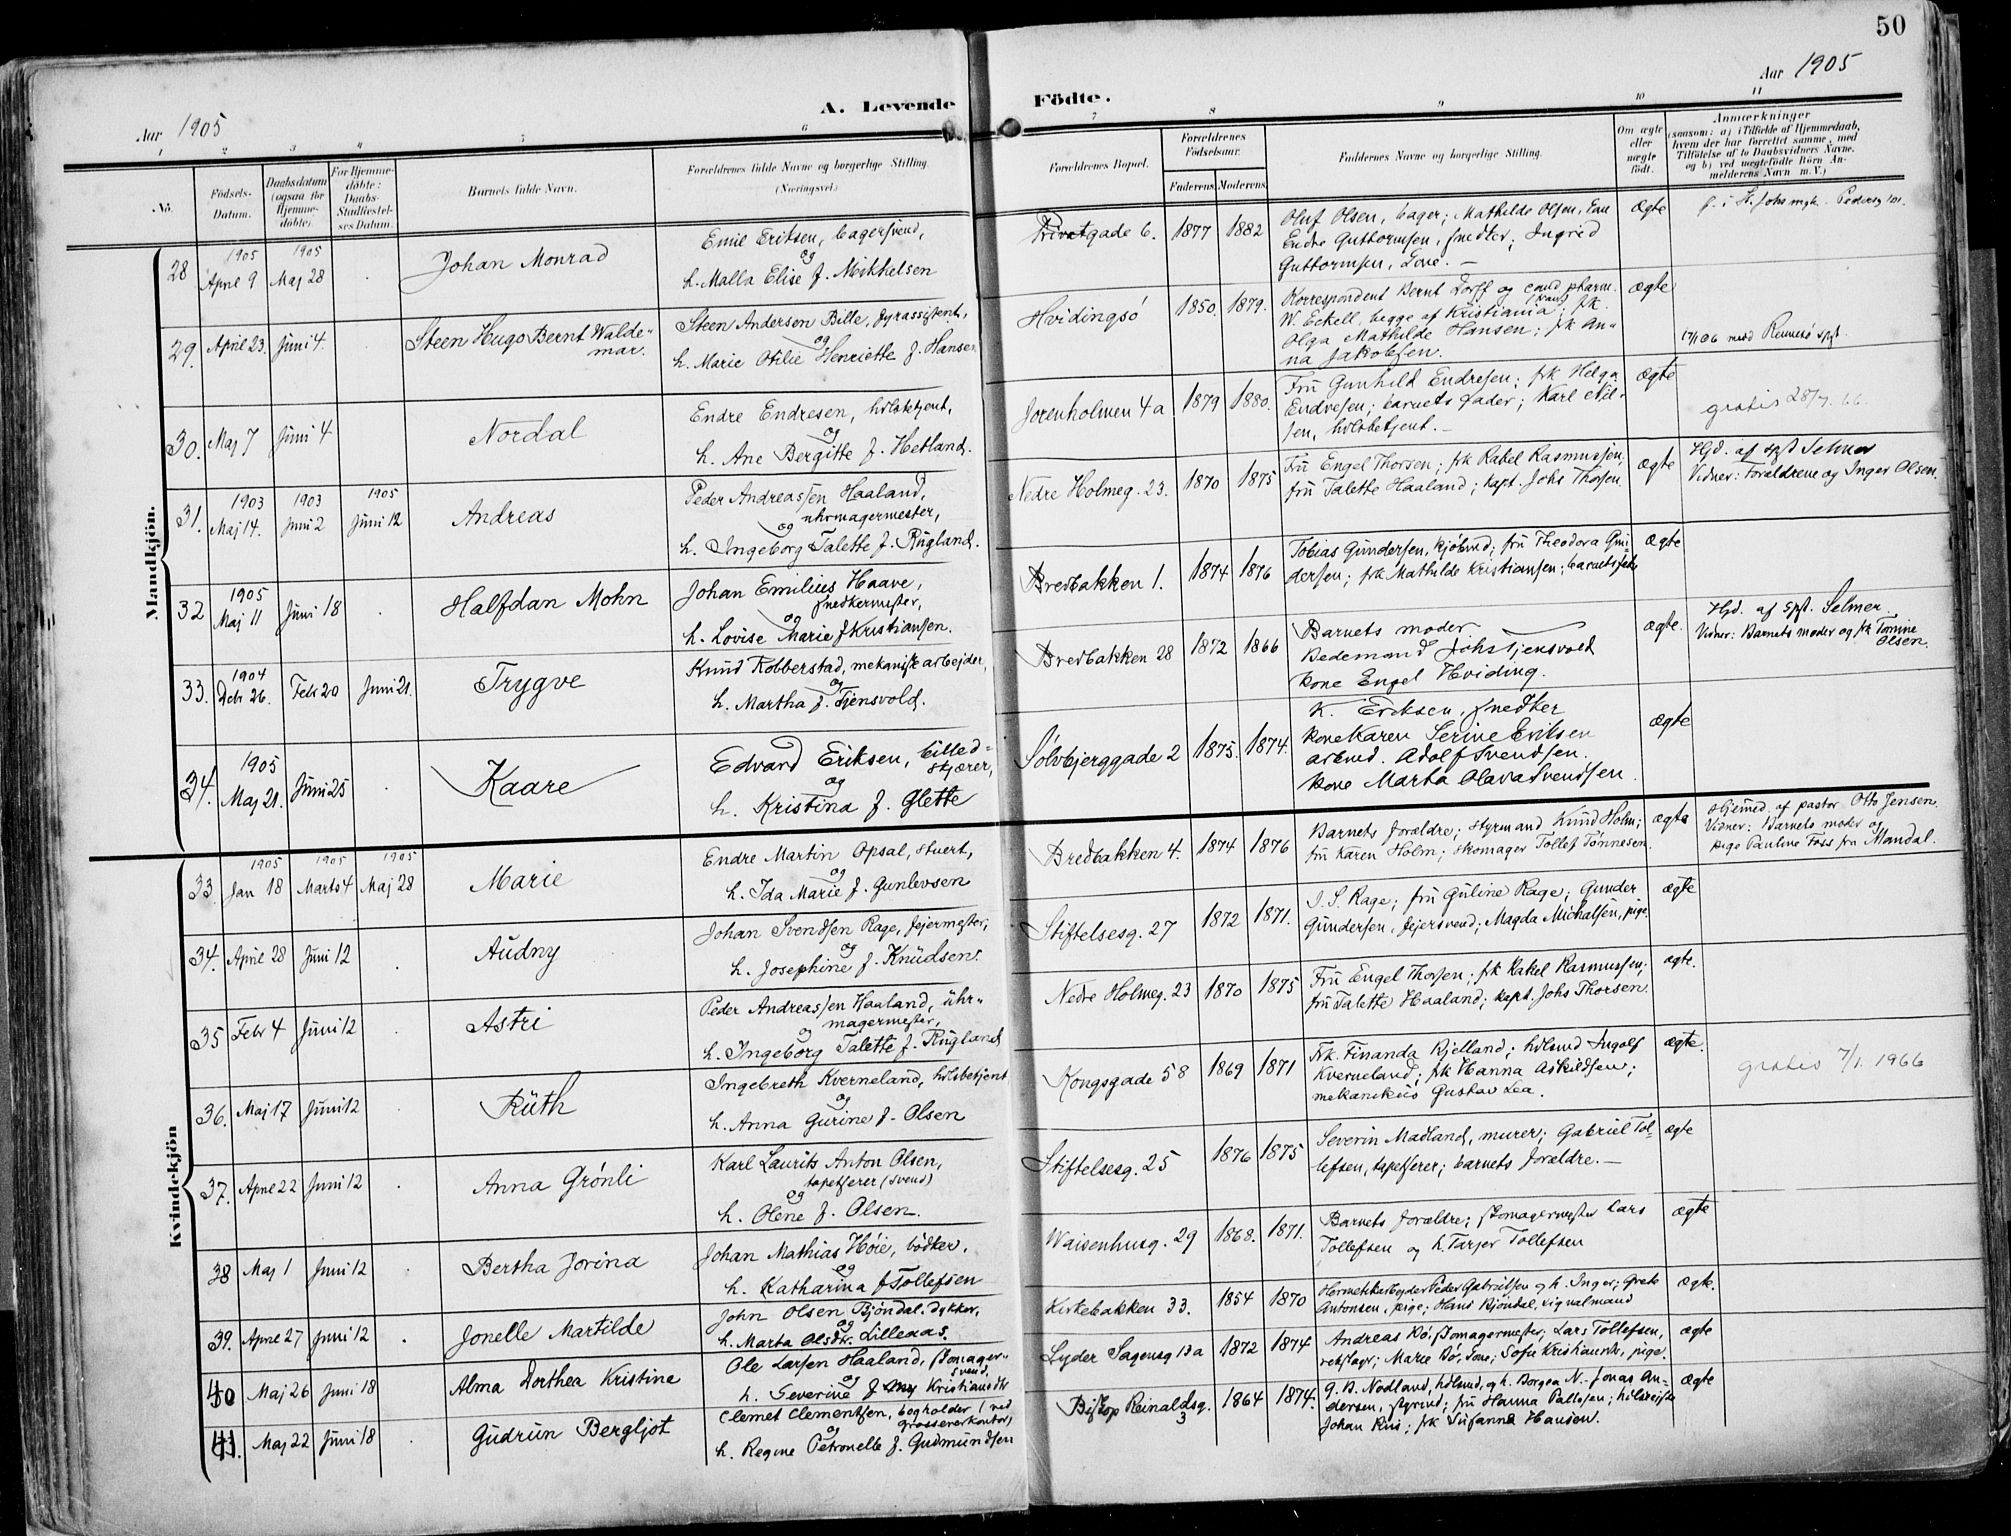 50
Aar 1905
A. Levende
Födte.
Aar 1905
1 2 3 4 5 6
7 8 9 10 11
No.
Födsels-
Datum.
Daabsdatum
(ogsaa for
Hjemme-
döbte).
For Hjemme-
döbte:
Daabs-
Stadfæstel-
ses Datum.
Barnets fulde Navn.
Forældrenes fulde Navne og borgerlige Stilling
(Næringsvei.)
Forældrenes Bopæl.
Forældrenes
Födselsaar.
Faderens. Moderens.
Faddernes Navne og borgerlige Stilling.
Om ægte
eller
uægte
födt.
Anmærkninger
(saasom: a) i Tilfælde af Hjemmedaab,
hvem der har forrettet samme, med
Tilföielse af to Daabsvidners Navne,
og b) ved uægtefödte Börn An-
melderens Navn m. V.)
Mandkjön.
28 1905 April 9 1905 Maj 28 Johan Monrad
Emil Eriksen, bagersvend,
og
h. Malla Elise f. Mikkelsen
Privatgade 6. 1877 1882
Oluf Olsen, bager; Mathilde Olsen,
Endre Guttormsen, snedker; Ingrid
Guttormsen, kone. —
Ægte
29. April 23. Juni 4. Steen Hugo Bernt Walde-
mar.
Steen Andersen Bille, fyrassistent,
og
h. Marie Otilie Henriette f. Hansen
Hvidingsö 1850. 1879.
Korrespondent Bernt Dorff og cand pharm.
W. Eckell, begge af Kristiania; frk.
Olga Mathilde Hansen; frk An-
na Jakobsen.
Ægte
17/1 06 medd Rennesø spgt.
30. Maj 7 Juni 4 Nordal
Endre Endresen, hdlsbetjent,
og
h. Ane Bergitte f. Hetland.
Jorenholmen 4a 1879 1880.
Fru Gunhild Endresen; frk Helga
Endresen; barnets fader; Karl Nil-
sen, hdlsbetjent. —
Ægte
gratis 28/9. 66.
31. 1903 Maj 14. 1903 Juni 2 1905 Juni 12 Andreas
Peder Andreassen Haaland,
uhrmagermester,
og
h. Ingeborg Talette f. Rugland.
Nedre Holmeg. 23. 1870 1875
Fru Engel Thorsen; frk Rakel Rasmussen,
fru Talette Haaland; kapt. Johs Thorsen.
Ægte
Hjd. af spgt Selmer
Vidner: Forældrene og Inger Olsen.
32 1905 Maj 11 Juni 18 Halfdan Mohn
Johan Emilius Haave,
snedkermester,
og
h. Lovise Marie f Kristiansen.
Bredbakken 1. 1874 1876
Tobias Gundersen, kjøbmd; fru Theodora Gun-
dersen; frk Mathilde Kristiansen; barnets fader
Ægte
33. 1904 Debr 26. Febr 20 Juni 21. Trygve
Knud Kobberstad, mekanisk arbejder,
og
h. Martha f. Tjensvold.
Bredbakken 28 1872 1866
Barnets moder
Bedemand Johs Tjensvold
kone Engel Hviding.
ægte.
Hjd. af spt. Selmer.
Vidner: Barnets moder og frk Tomine
Olsen.
34. 1905 Maj 21. Juni 25 Kaare
Edvard Eriksen, billed-
skjærer,
og
h. Kristina f. Glette
Sølvbjerggade 2 1875. 1874.
K. Eriksen, snedker
kone Karen Serine Eriksen
arbmd. Adolf Svendsen.
kone Marta Olava Svendsen.
ægte
Kvindekjön
33. 1905 Jan 18 1905 Marts 4 1905 Maj 28 Marie
Endre Martin Opsal, stuert,
og
h. Ida Marie f. Gunlevsen
Bredbakken 4. 1874 1876
Barnets forældre; styrmand Knud Holm;
fru Karen Holm; skomager Tollef Tönnesen.
ægte
Hjemed. af pastor Otto Jensen.
Vidner: Barnets moder og
pige Pauline Foss fra Mandal.
34. April 28 Juni 12 Audny
Johan Svendsen Rage, fejermester,
og
h. Josephine f. Knudsen.
Stiftelsesg. 27 1872 1871.
J. S. Rage; fru Guline Rage; Gunder
Gundersen, fejersvend; Magda Michalsen, pige.
ægte
35 Febr 4 Juni 12 Astri
Peder Andreassen Haaland, uhr-
magermester,
og
h. Ingeborg Talette f. Rugland
Nedre Holmeg. 23 1870 1875
Fru Engel Thorsen; frk Rakel Rasmussen;
fru Talette Haaland; kapt. Johs Thorsen.
ægte.
36. Maj 17 Juni 12 Ruth
Ingebreth Kverneland, hdlsbetjent
og
h. Anna Gurine f. Olsen
Kongsgade 58 1869 1871
Frk. Finanda Kjelland; hdlsmd Ingolf
Kverneland; frk Hanna Askildsen;
mekanikus Gustav Lea.
ægte.
gratis 7/1. 1966
37. April 22 Juni 12 Anna Grönli
Karl Laurits Anton Olsen,
tapetserer (svend)
og
h. Olene f. Olsen.
Stiftelsesg. 25 1876 1875
Severin Madland, murer; Gabriel Tol-
lefsen, tapetserer; barnets forældre. —
ægte
38 Maj 1 Juni 12 Bertha Jorina
Johan Mathias Höie, bödker,
og
h. Katharina f Tollefsen
Waisenhusg. 29 1868. 1871.
Barnets forældre; skomagermester Lars
Tollefsen og h. Tarjer Tollefsen
ægte
39. April 27 Juni 12 Jonelle Martilde
John Olsen Bjöndal, dykker,
og
h. Marta Olsdtr. Lilleaas.
Kirkebakken 33. 1854 1870
Hermetikarbejder Peder Gabrielsen og h. Inger; Grete
Antonsen, pige; Hans Bjöndal, signalmand
ægte.
40 Maj 26 Juni 18 Alma Dorthea Kristine
Ole Larsen Haaland, skomager-
svend,
og
h. Severine f Kristiansdtr
Lyder Sagensg 13a 1872 1874
Andreas Bö, skomagermester; Lars Tollefsen,
rebslager; Marie Bø, kone; Sofie Kristiansdtr, pige.
ægte
41. Maj 22 Juni 18 Gudrun Bergljot
Clemet Clementsen, bogholder (ved
grossererkontor)
og
h. Regine Petronelle f. Gudmundsen
Biskop Reinaldsg. 3 1864 1874.
G. B. Nodland, hdlsmd, og h. Borgea N.; Jonas An-
dersen, styrmd; fru Hanna Pallesen;
Johan Riis; frk Susanna Hansen.
ægte